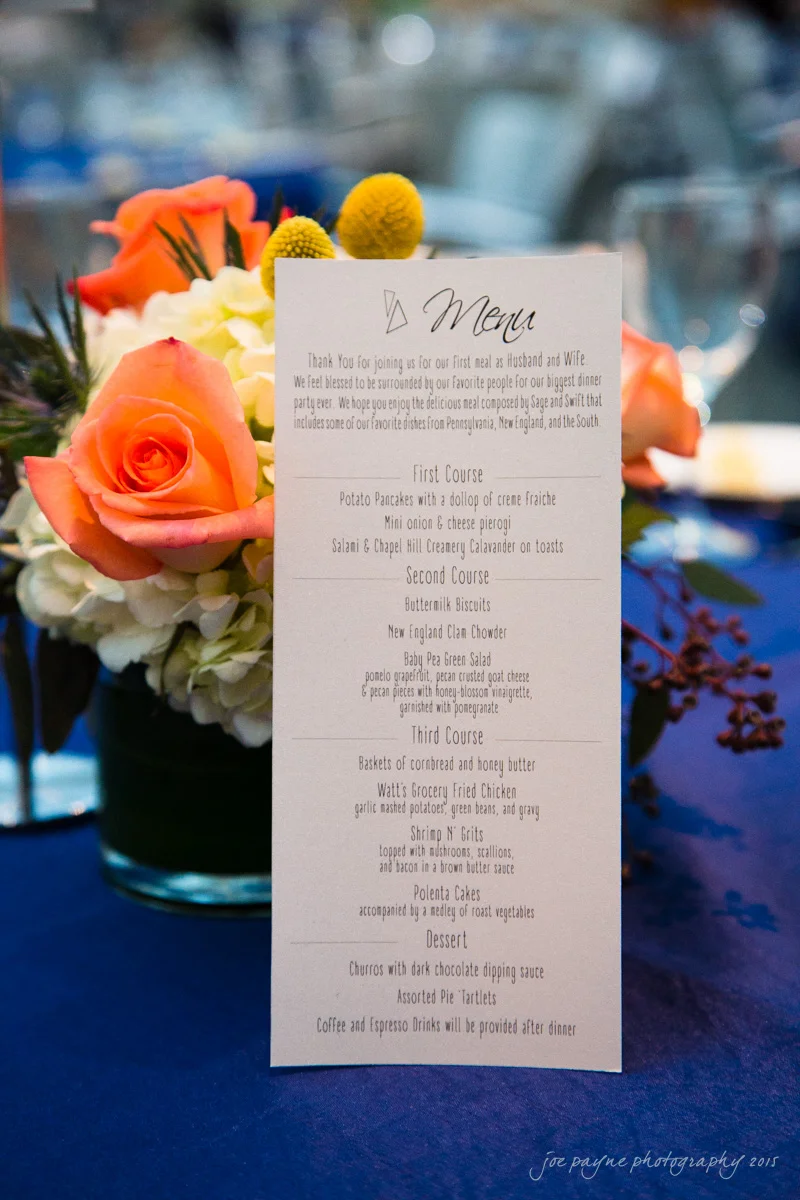 Menu
Thank You for joining us for our first meal as Husband and Wife.
We feel blessed to be surrounded by our favorite people for our biggest dinner
party ever. We hope you enjoy the delicious meal composed by Sage and Swift that
includes some of our favorite dishes from Pennsylvania, New England, and the South.
First Course
Potato Pancakes with a dollop of creme fraiche
Mini onion & cheese pierogi
Salami & Chapel Hill Creamery Calavander on toasts
Second Course
Buttermilk Biscuits
New England Clam Chowder
Baby Pea Green Salad
pomelo grapefruit, pecan crusted goat cheese
& pecan pieces with honey-blossom vinaigrette,
garnished with pomegranate
Third Course
Baskets of cornbread and honey butter
Watt's Grocery Fried Chicken
garlic mashed potatoes, green beans, and gravy
Shrimp N' Grits
topped with mushrooms, scallions,
and bacon in a brown butter sauce
Polenta Cakes
accompanied by a medley of roast vegetables
Dessert
Churros with dark chocolate dipping sauce
Assorted Pie 'Tartlets
Coffee and Espresso Drinks will be provided after dinner
joe payne photography 2015